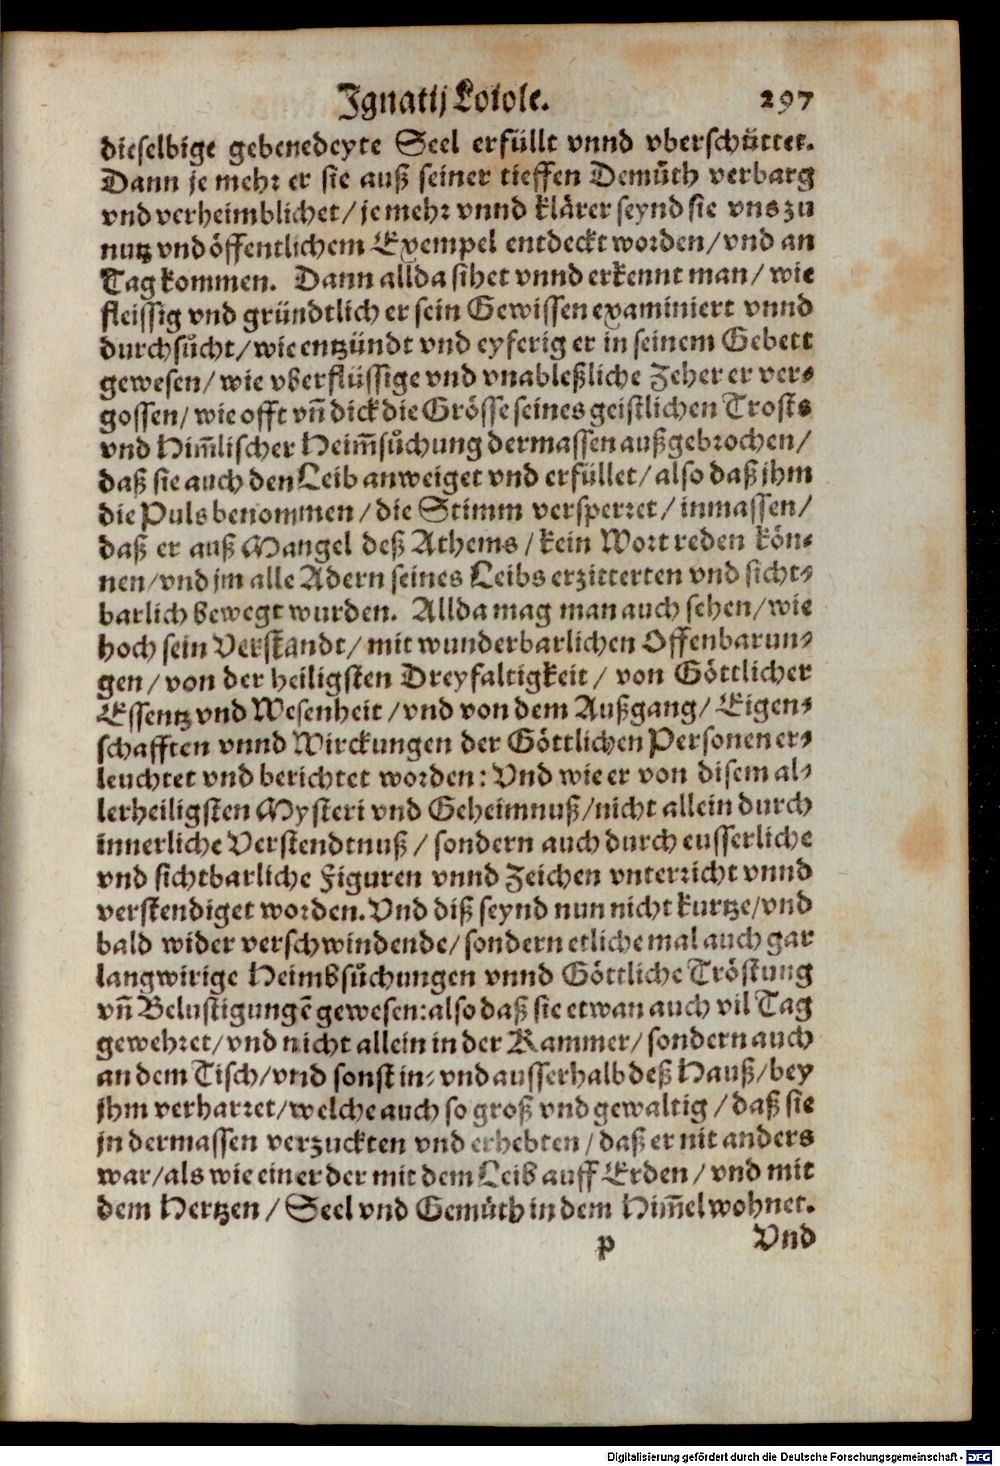 Ignatij Loiole. 297
dieselbige gebenedeyte Seel erfüllt vnnd vberschüttet.
Dann je mehr er sie auß seiner tieffen Demůth verbarg
vnd verheimblichet/ je mehr vnnd klärer seynd sie vns zu
nutz vnd öffentlichem Exempel entdeckt worden/ vnd an
Tag kommen. Dann allda sihet vnnd erkennt man/ wie
fleissig vnd gründtlich er sein Gewissen examiniert vnnd
durchsůcht/ wie entzündt vnd eyferig er in seinem Gebett
gewesen/ wie vberflüssige vnd vnableßliche Zeher er ver-
gossen/ wie offt vñ dick die Grösse seines geistlichen Trosts
vnd Him̃lischer Heim̃sůchung dermassen außgebrochen/
daß sie auch den Leib anweiget vnd erfüllet/ also daß jhm
die Puls benommen/ die Stimm versperret/ inmassen/
daß er auß Mangel deß Athems/ kein Wort reden kön-
nen/ vnd jm alle Adern seines Leibs erzitterten vnd sicht-
barlich bewegt wurden. Allda mag man auch sehen/ wie
hoch sein Verstandt/ mit wunderbarlichen Offenbarun-
gen/ von der heiligsten Dreyfaltigkeit/ von Göttlicher
Essentz vnd Wesenheit/ vnd von dem Außgang/ Eigen-
schafften vnnd Wirckungen der Göttlichen Personen er-
leuchtet vnd berichtet worden: Vnd wie er von disem al-
lerheiligsten Mysteri vnd Geheimnuß/ nicht allein durch
innerliche Verstendtnuß/ sondern auch durch eusserliche
vnd sichtbarliche Figuren vnnd Zeichen vnterricht vnnd
verstendiget worden. Vnd diß seynd nun nicht kurtze/ vnd
bald wider verschwindende/ sondern etliche mal auch gar
langwirige Heimbsůchungen vnnd Göttliche Tröstung
vñ Belustigungẽ gewesen: also daß sie etwan auch vil Tag
gewehret/ vnd nicht allein in der Kammer/ sondern auch
an dem Tisch/ vnd sonst in- vnd ausserhalb deß Hauß/ bey
jhm verharret/ welche auch so groß vnd gewaltig/ daß sie
jn dermassen verzuckten vnd erhebten/ daß er nit anders
war/ als wie einer der mit dem Leib auff Erden/ vnd mit
dem Hertzen/ Seel vnd Gemůth in dem Him̃el wohnet.
p Vnd
Digitalisierung gefördert durch die Deutsche Forschungsgemeinschaft - DFG